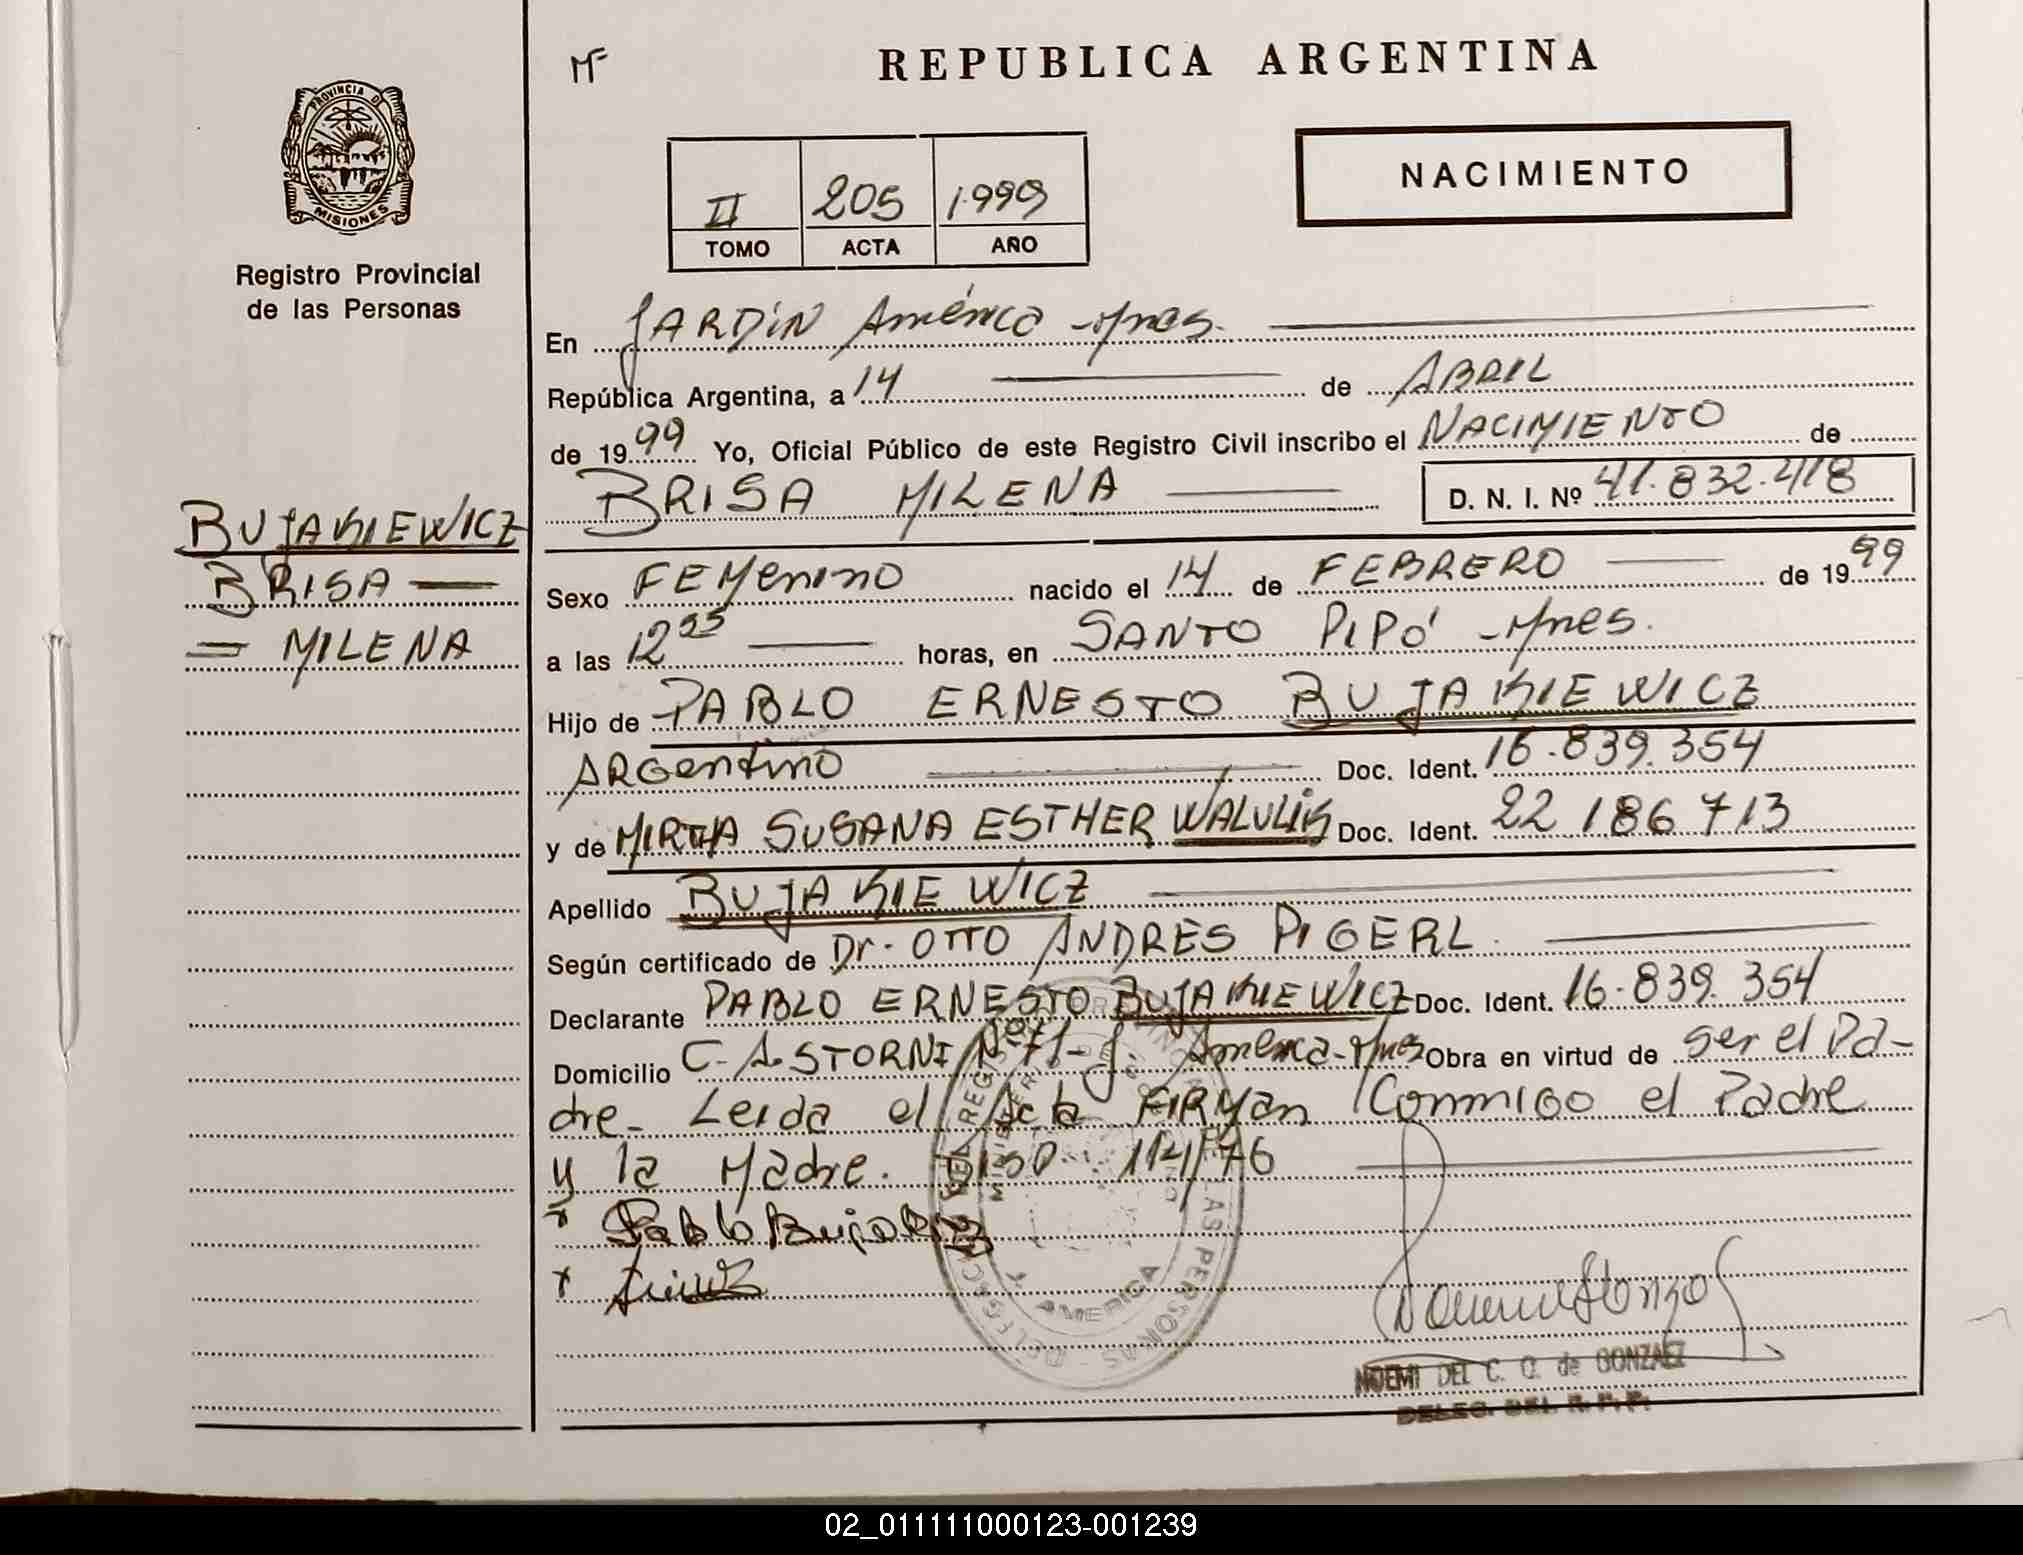 Mª
REPUBLICA ARGENTINA
PROVINCIA D
MISIONES
Registro Provincial
de las Personas
II 205 1999
TOMO ACTA AÑO
NACIMIENTO
En JARDiN América -Mnes.
República Argentina, a 14 de ABRIL
de 1999 Yo, Oficial Público de este Registro Civil inscribo el NACIMIENTO de
BRISA MILENA D. N. I. Nº 41.832.418
BUJAKIEWICZ
BRISA
= MILENA
Sexo FEMENINO nacido el 14 de FEBRERO de 1999
a las 12 horas, en SANTO PIPÓ -Mnes.
Hijo de PABLO ERNESTO BUJAKIEWICZ
ARGentino Doc. Ident. 16.839.354
y de MIRTHA SUSANA ESTHER WALULIK Doc. Ident. 22 186 713
Apellido BUJAKIEWICZ
Según certificado de Dr. OTTO ANDRES PIGERL.
Declarante PABLO ERNESTO BUJAKIEWICZ Doc. Ident. 16.839.354
Domicilio C. A. STORNI Nº 71 - J. América - Mnes Obra en virtud de ser el Pa-
dre_ Leida el Acta FIRMan Conmigo el Padre
y la Madre. DISP. 114/76
x Pablo Bujakiewicz
x
DELEGACION DEL REGISTRO PROVINCIAL DE LAS PERSONAS
MINISTERIO DE GOBIERNO
J. AMERICA
NOEMI DEL C. O. de GONZALEZ
DELEG. DEL R. P. P.
02_011111000123-001239